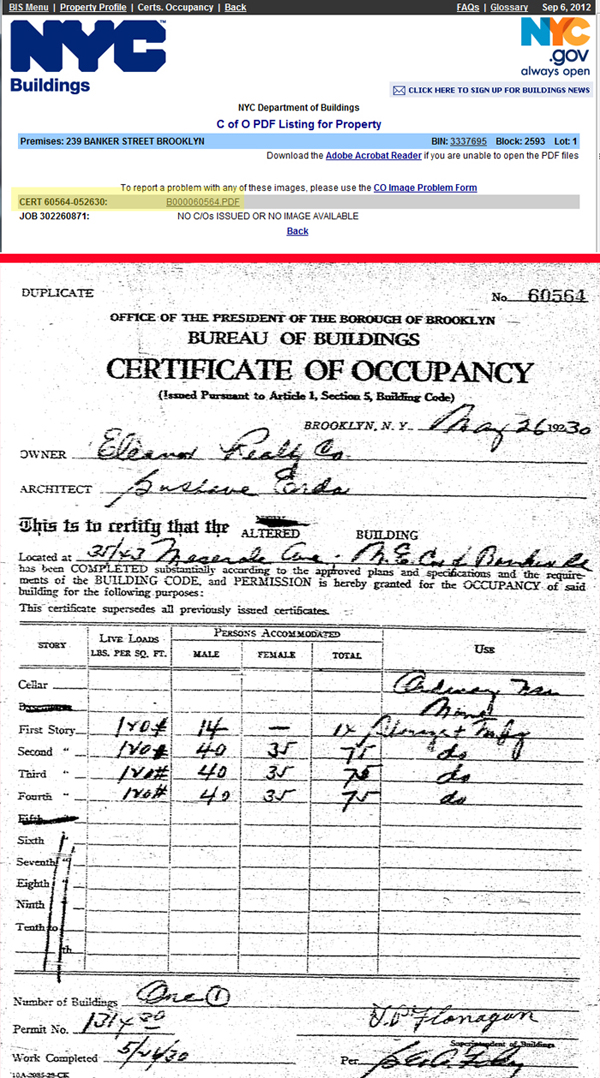 BIS Menu | Property Profile | Certs. Occupancy | Back FAQs | Glossary Sep 6, 2012
NYC
Buildings
NYC
.gov
always open
CLICK HERE TO SIGN UP FOR BUILDINGS NEWS
NYC Department of Buildings
C of O PDF Listing for Property
Premises: 239 BANKER STREET BROOKLYN BIN: 3337695 Block: 2593 Lot: 1
Download the Adobe Acrobat Reader if you are unable to open the PDF files
To report a problem with any of these images, please use the CO Image Problem Form
CERT 60564-052630: B000060564.PDF
JOB 302260871: NO C/Os ISSUED OR NO IMAGE AVAILABLE
Back
DUPLICATE No. 60564
OFFICE OF THE PRESIDENT OF THE BOROUGH OF BROOKLYN
BUREAU OF BUILDINGS
CERTIFICATE OF OCCUPANCY
(Issued Pursuant to Article 1, Section 5, Building Code)
BROOKLYN, N. Y. May 26 19230
OWNER Eleanor Realty Co.
ARCHITECT Gustave Erda
This is to certify that the ALTERED BUILDING
Located at 35/43 Meserole Ave - N.E. Cor Banker
has been COMPLETED substantially according to the approved plans and specifications and the require-
ments of the BUILDING CODE, and PERMISSION is hereby granted for the OCCUPANCY of said
building for the following purposes:
This certificate supersedes all previously issued certificates.
STORY LIVE LOADS LBS. PER SQ. FT. PERSONS ACCOMMODATED MALE FEMALE TOTAL USE
Cellar Ordinary
Basement
First Story 120# 14 — 14 Storage + Mfg
Second " 120# 40 35 75 do
Third " 120# 40 35 75 do
Fourth " 120# 40 35 75 do
Fifth
Sixth "
Seventh "
Eighth "
Ninth "
Tenth to
th
Number of Buildings One (1)
Permit No. 131 30
Work Completed 5/26/30
Flanagan
Superintendent of Buildings
Per
10A-2085-29-CK